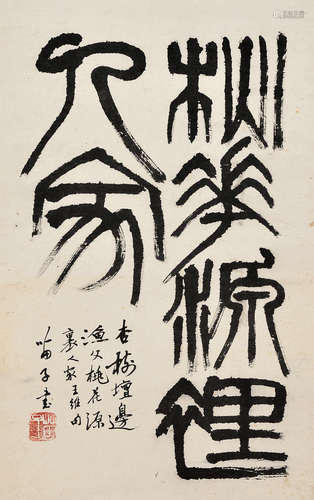 桃華源裡
人家
杏樹壇邊
漁父桃花源
裏人家王維句
苗子書